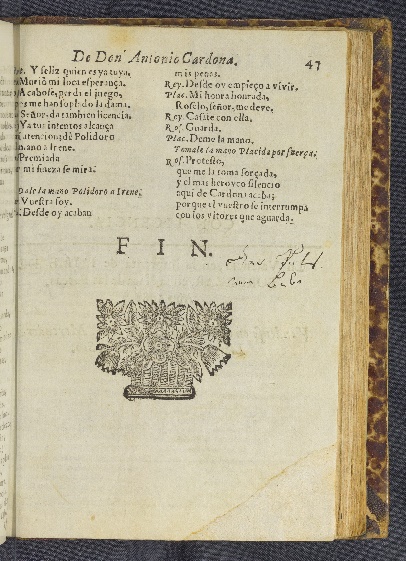 De Don Antonio Cardona.
47
Y feliz quien es ya tuya.
Muriò mi loca esperança.
Acabose, perdi el juego,
me han soplado la dama.
Señor, da tambien licencia,
Ya tus intentos alcança
atencion; dè Polidoro
mano a Irene.
Premiada
mi fineza se mira.
Dale la mano Polidoro a Irene.
Vuestra soy.
Desde oy acaban
mis penas.
Rey. Desde oy empieço a vivir.
Plac. Mi honra honrada,
Roselo, señor, me deve.
Rey. Casate con ella.
Ros. Guarda.
Plac. Deme la mano.
Tomale la mano Placida por fuerça.
Ros. Protesto,
que me la toma forçada,
y el mas heroyco silencio
aqui de Cardona acaba;
porque el vuestro se interrumpa
con los vitores que aguarda.
F I N.